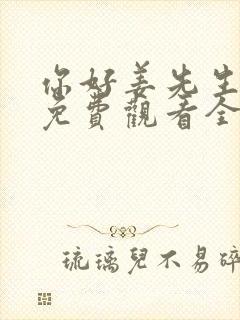 你好姜先生
免費觀看全
琉璃兒不易碎